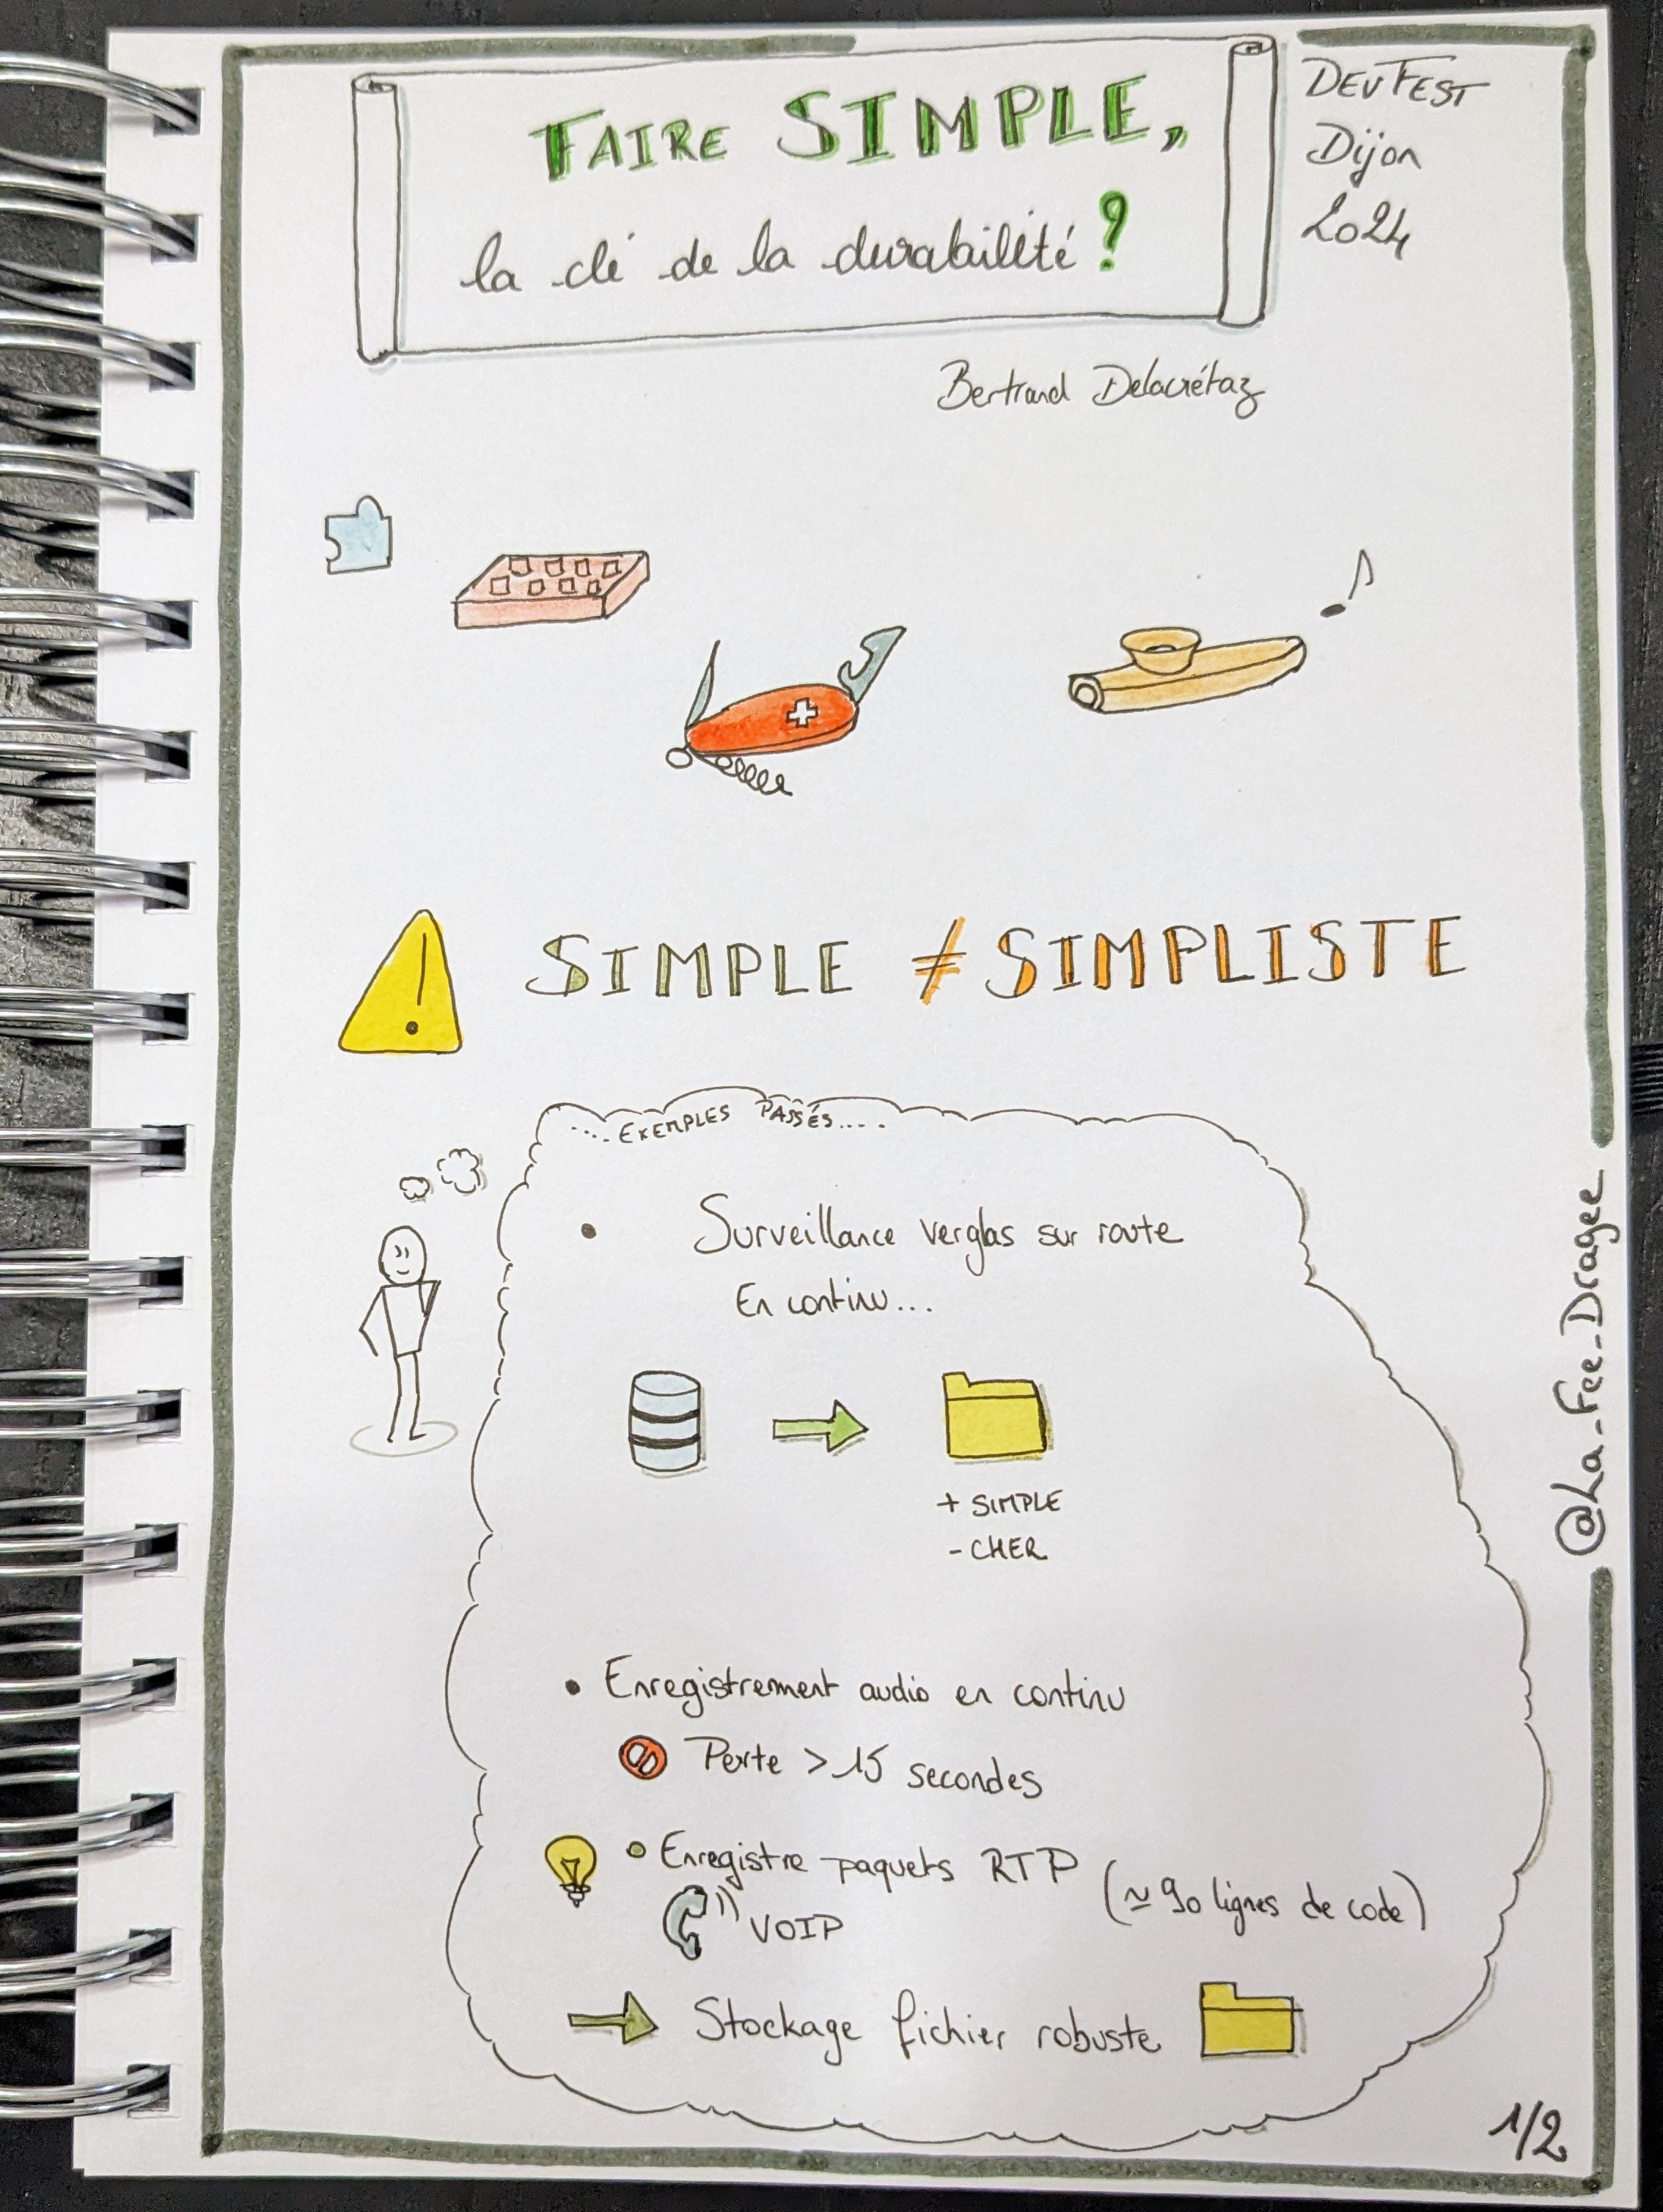 FAIRE SIMPLE,
la clé de la durabilité ?
DEVFEST
Dijon
2024
Bertrand Delacrétaz
! SIMPLE ≠ SIMPLISTE
.... EXEMPLES PASSÉS....
• Surveillance verglas sur route
En continu...
+ SIMPLE
- CHER
• Enregistrement audio en continu
Perte > 15 secondes
• Enregistre paquets RTP (≃ 90 lignes de code)
VOIP
Stockage fichier robuste
@La_Fee_Dragee
1/2